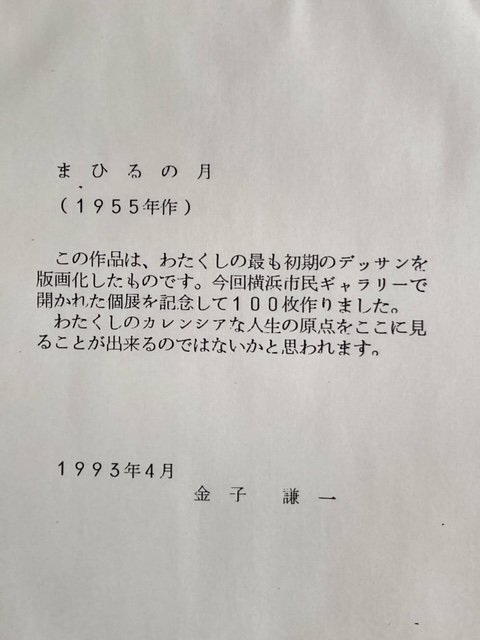 まひるの月
(1955年作)
この作品は、わたくしの最も初期のデッサンを
版画化したものです。今回横浜市民ギャラリーで
開かれた個展を記念して100枚作りました。
わたくしのカレンシアな人生の原点をここに見
ることが出来るのではないかと思われます。
1993年4月
金子 謙一